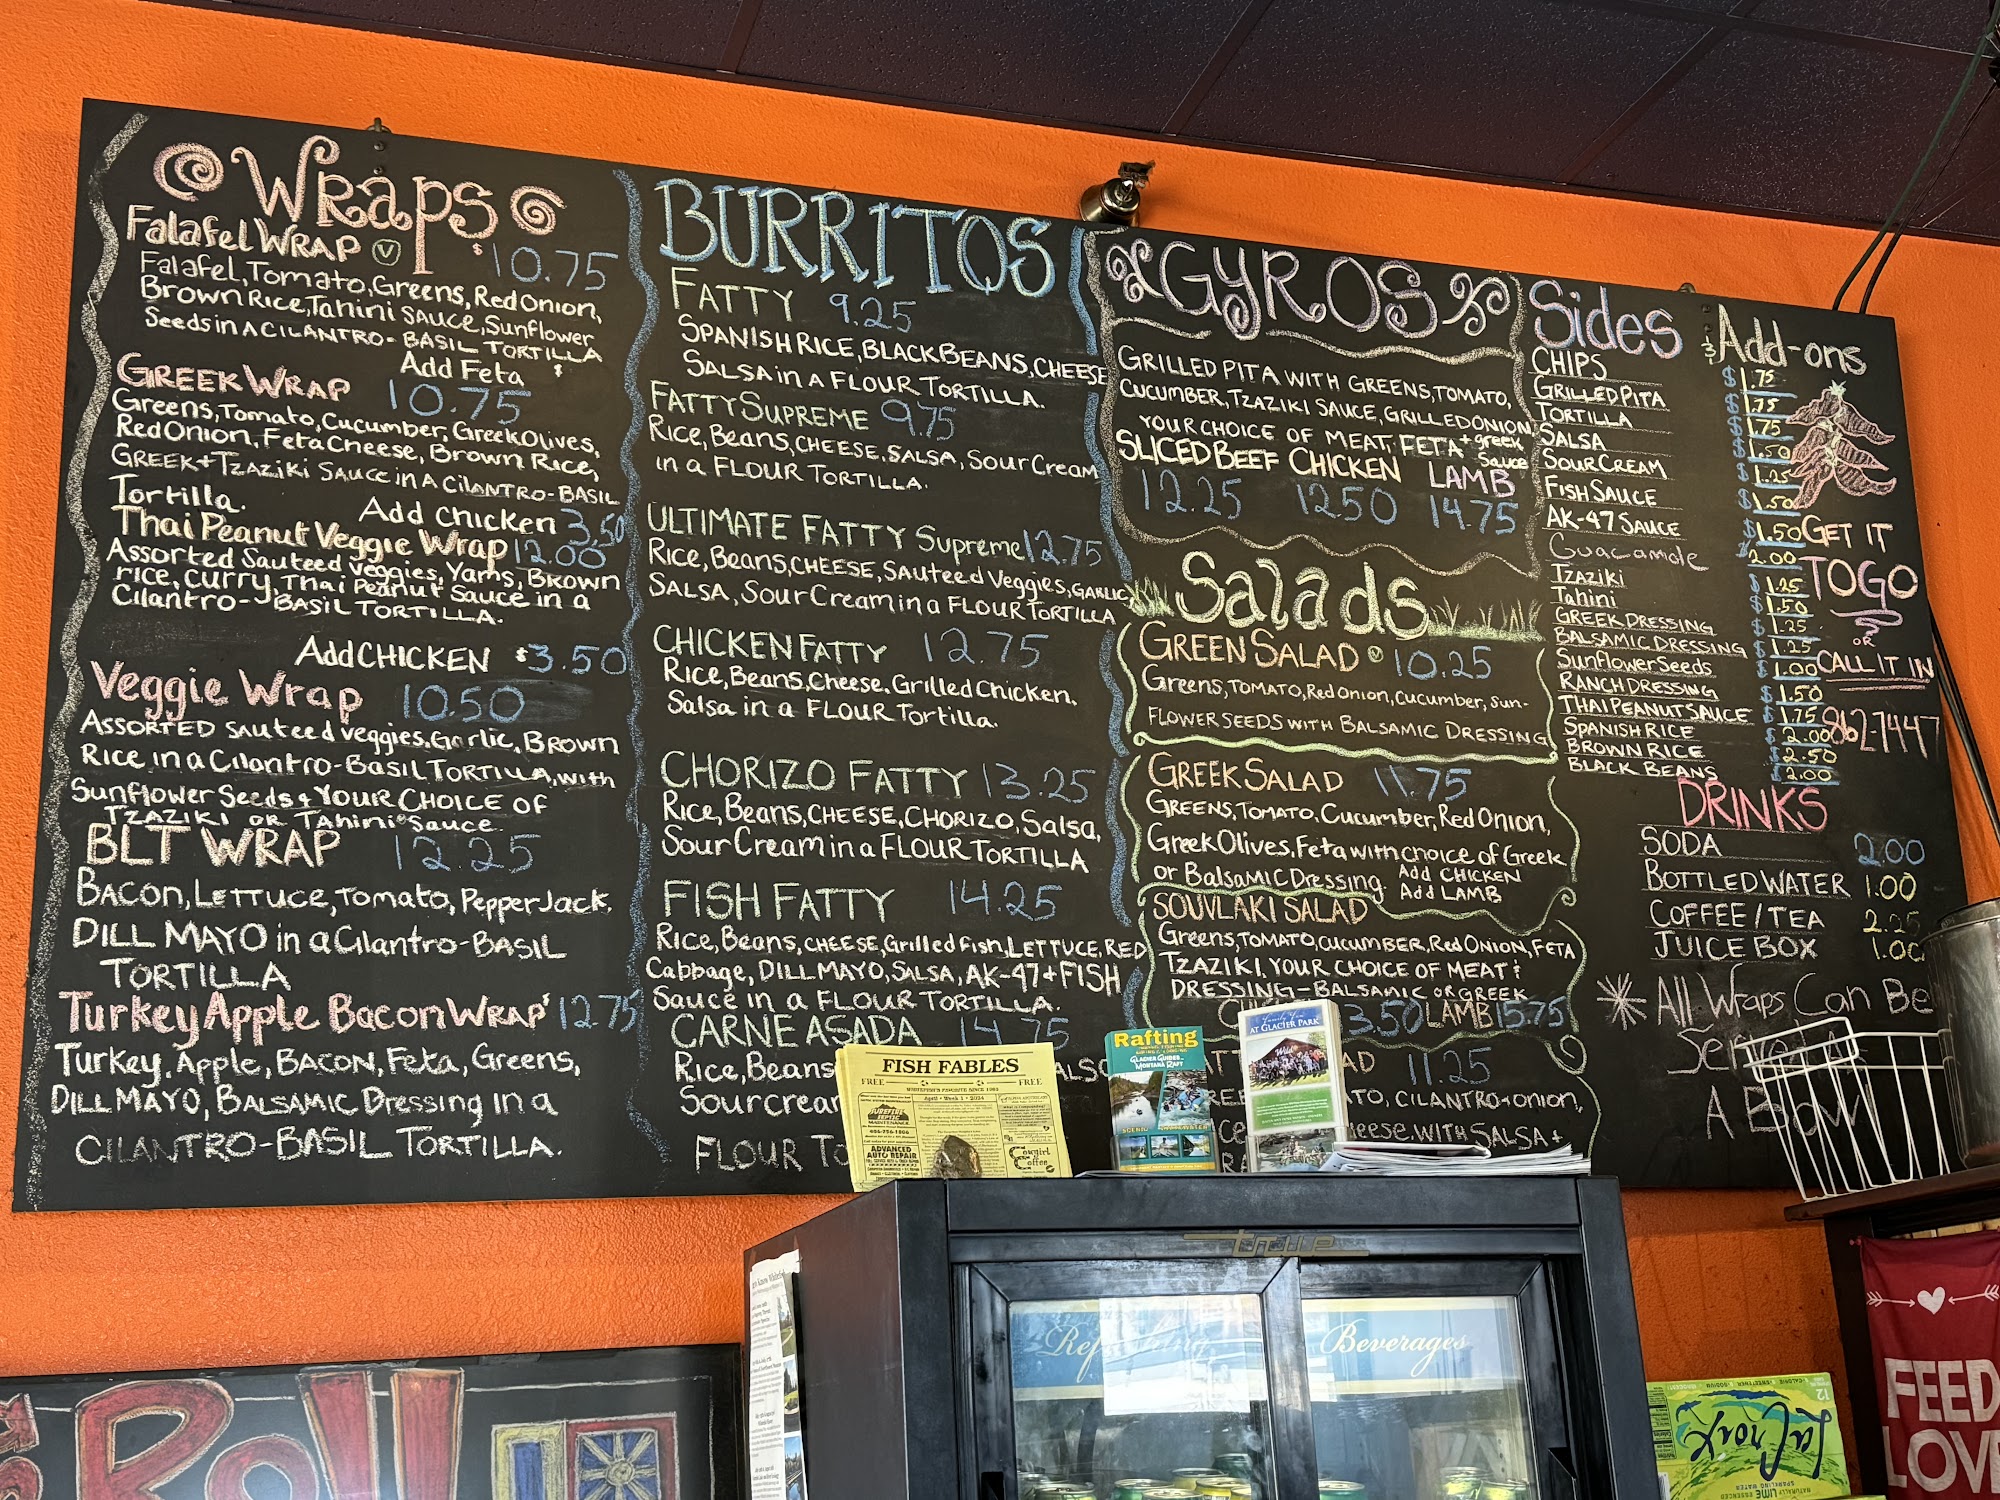 Wraps
Falafel Wrap V $10.75
Falafel, Tomato, Greens, Red Onion,
Brown Rice, Tahini Sauce, Sunflower
Seeds in a Cilantro-Basil Tortilla
Add Feta $
Greek Wrap 10.75
Greens, Tomato, Cucumber, Greek Olives,
Red Onion, Feta Cheese, Brown Rice,
Greek + Tzaziki Sauce in a Cilantro-Basil
Tortilla.
Add Chicken 3.50
Thai Peanut Veggie Wrap 12.00
Assorted Sauteed Veggies, Yams, Brown
rice, curry, Thai Peanut Sauce in a
Cilantro-Basil Tortilla.
Add CHICKEN $3.50
Veggie Wrap 10.50
Assorted Sauteed veggies, Garlic, Brown
Rice in a Cilantro-Basil Tortilla, with
Sunflower Seeds + YOUR CHOICE OF
TZAZIKI OR Tahini Sauce.
BLT WRAP 12.25
Bacon, Lettuce, Tomato, Pepper Jack,
DILL MAYO in a Cilantro-BASIL
TORTILLA
Turkey Apple Bacon Wrap $12.75
Turkey, Apple, Bacon, Feta, Greens,
Dill Mayo, Balsamic Dressing in a
CILANTRO-BASIL TORTILLA.
BURRITOS
FATTY 9.25
SPANISH RICE, BLACK BEANS, CHEESE
SALSA in A FLOUR TORTILLA.
FATTY SUPREME 9.75
Rice, Beans, CHEESE, SALSA, Sour Cream
in a FLOUR TORTILLA.
ULTIMATE FATTY Supreme 12.75
Rice, Beans, CHEESE, Sauteed Veggies, GARLIC,
SALSA, Sour Cream in a FLOUR TORTILLA
CHICKEN FATTY 12.75
Rice, Beans, Cheese, Grilled Chicken,
Salsa in a FLOUR Tortilla.
CHORIZO FATTY 13.25
Rice, Beans, CHEESE, CHORIZO, Salsa,
Sour Cream in a FLOUR TORTILLA
FISH FATTY 14.25
Rice, Beans, CHEESE, Grilled Fish, LETTUCE, RED
Cabbage, DILL MAYO, SALSA, AK-47 + FISH
Sauce in a FLOUR TORTILLA.
CARNE ASADA 14.75
Rice, Beans
Sour crea
FLOUR
GYROS
GRILLED PITA WITH GREENS, TOMATO,
CUCUMBER, TZAZIKI SAUCE, GRILLED ONION,
YOUR CHOICE OF MEAT, FETA + greek sauce
SLICED BEEF CHICKEN LAMB
12.25 12.50 14.75
Salads
GREEN SALAD V 10.25
Greens, TOMATO, Red Onion, Cucumber, Sun-
FLOWER SEEDS WITH BALSAMIC DRESSING
GREEK SALAD 11.75
GREENS, TOMATO, Cucumber, Red Onion,
Greek Olives, Feta with choice of Greek
or Balsamic Dressing. Add CHICKEN
Add LAMB
SOUVLAKI SALAD
Greens, TOMATO, CUCUMBER, Red Onion, FETA
TZAZIKI, YOUR CHOICE OF MEAT &
DRESSING-BALSAMIC OR GREEK
3.50 LAMB 15.75
AD 11.25
TO, CILANTRO + ONION,
eese, WITH SALSA +
Sides & Add-ons
CHIPS $1.75
GRILLED PITA $1.75
TORTILLA $1.75
SALSA $1.50
SOUR CREAM $1.25
FISH SAUCE $1.50
AK-47 SAUCE $1.50
Guacamole $2.00
TZAZIKI $1.25
Tahini $1.50
GREEK DRESSING $1.25
BALSAMIC DRESSING $1.25
Sunflower Seeds $1.00
RANCH DRESSING $1.50
THAI PEANUT SAUCE $1.75
SPANISH RICE $2.00
BROWN RICE $2.50
BLACK BEANS $2.00
GET IT
TO GO
OR
CALL IT IN
862-7447
DRINKS
SODA 2.00
BOTTLED WATER 1.00
COFFEE / TEA 2.25
JUICE BOX 1.00
All Wraps Can Be
A Bowl
FISH FABLES
FREE FREE
WHITEFISH'S FAVORITE SINCE 1993
April • Week 1 • 2024
SUREFIRE SEPTIC
MAINTENANCE
ADVANCED
AUTO REPAIR
Cowgirl
Coffee
Rafting
GLACIER GUIDES
MONTANA RAFT
SCENIC WHITEWATER
Family Fun
AT GLACIER PARK
true
Refreshing
Beverages
Roll
12
LaCroix
LIME
NATURALLY ESSENCED
SPARKLING WATER
FEED
LOVE